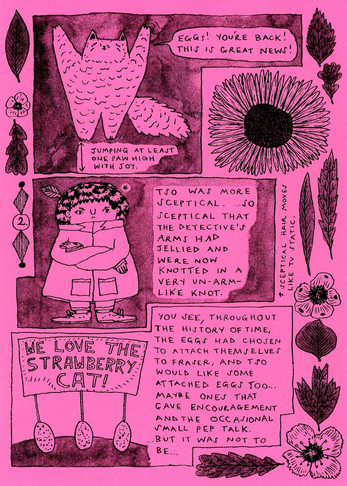 EGGS! YOU'RE BACK!
THIS IS GREAT NEWS!
JUMPING AT LEAST
ONE PAW HIGH
WITH JOY.
TSO WAS MORE
SCEPTICAL. ...SO
SCEPTICAL THAT
THE DETECTIVE'S
ARMS HAD
JELLIED AND
WERE NOW
KNOTTED IN A
VERY UN-ARM-
LIKE KNOT.
* SCEPTICAL HAIR MOVES
LIKE TV STATIC.
2
WE LOVE THE
STRAWBERRY
CAT!
YOU SEE, THROUGHOUT
THE HISTORY OF TIME,
THE EGGS HAD CHOSEN
TO ATTACH THEMSELVES
TO FRASER, AND TSO
WOULD LIKE SOME
ATTACHED EGGS TOO...
MAYBE ONES THAT
GAVE ENCOURAGEMENT
AND THE OCCASIONAL
SMALL PEP TALK.
...BUT IT WAS NOT TO
BE...